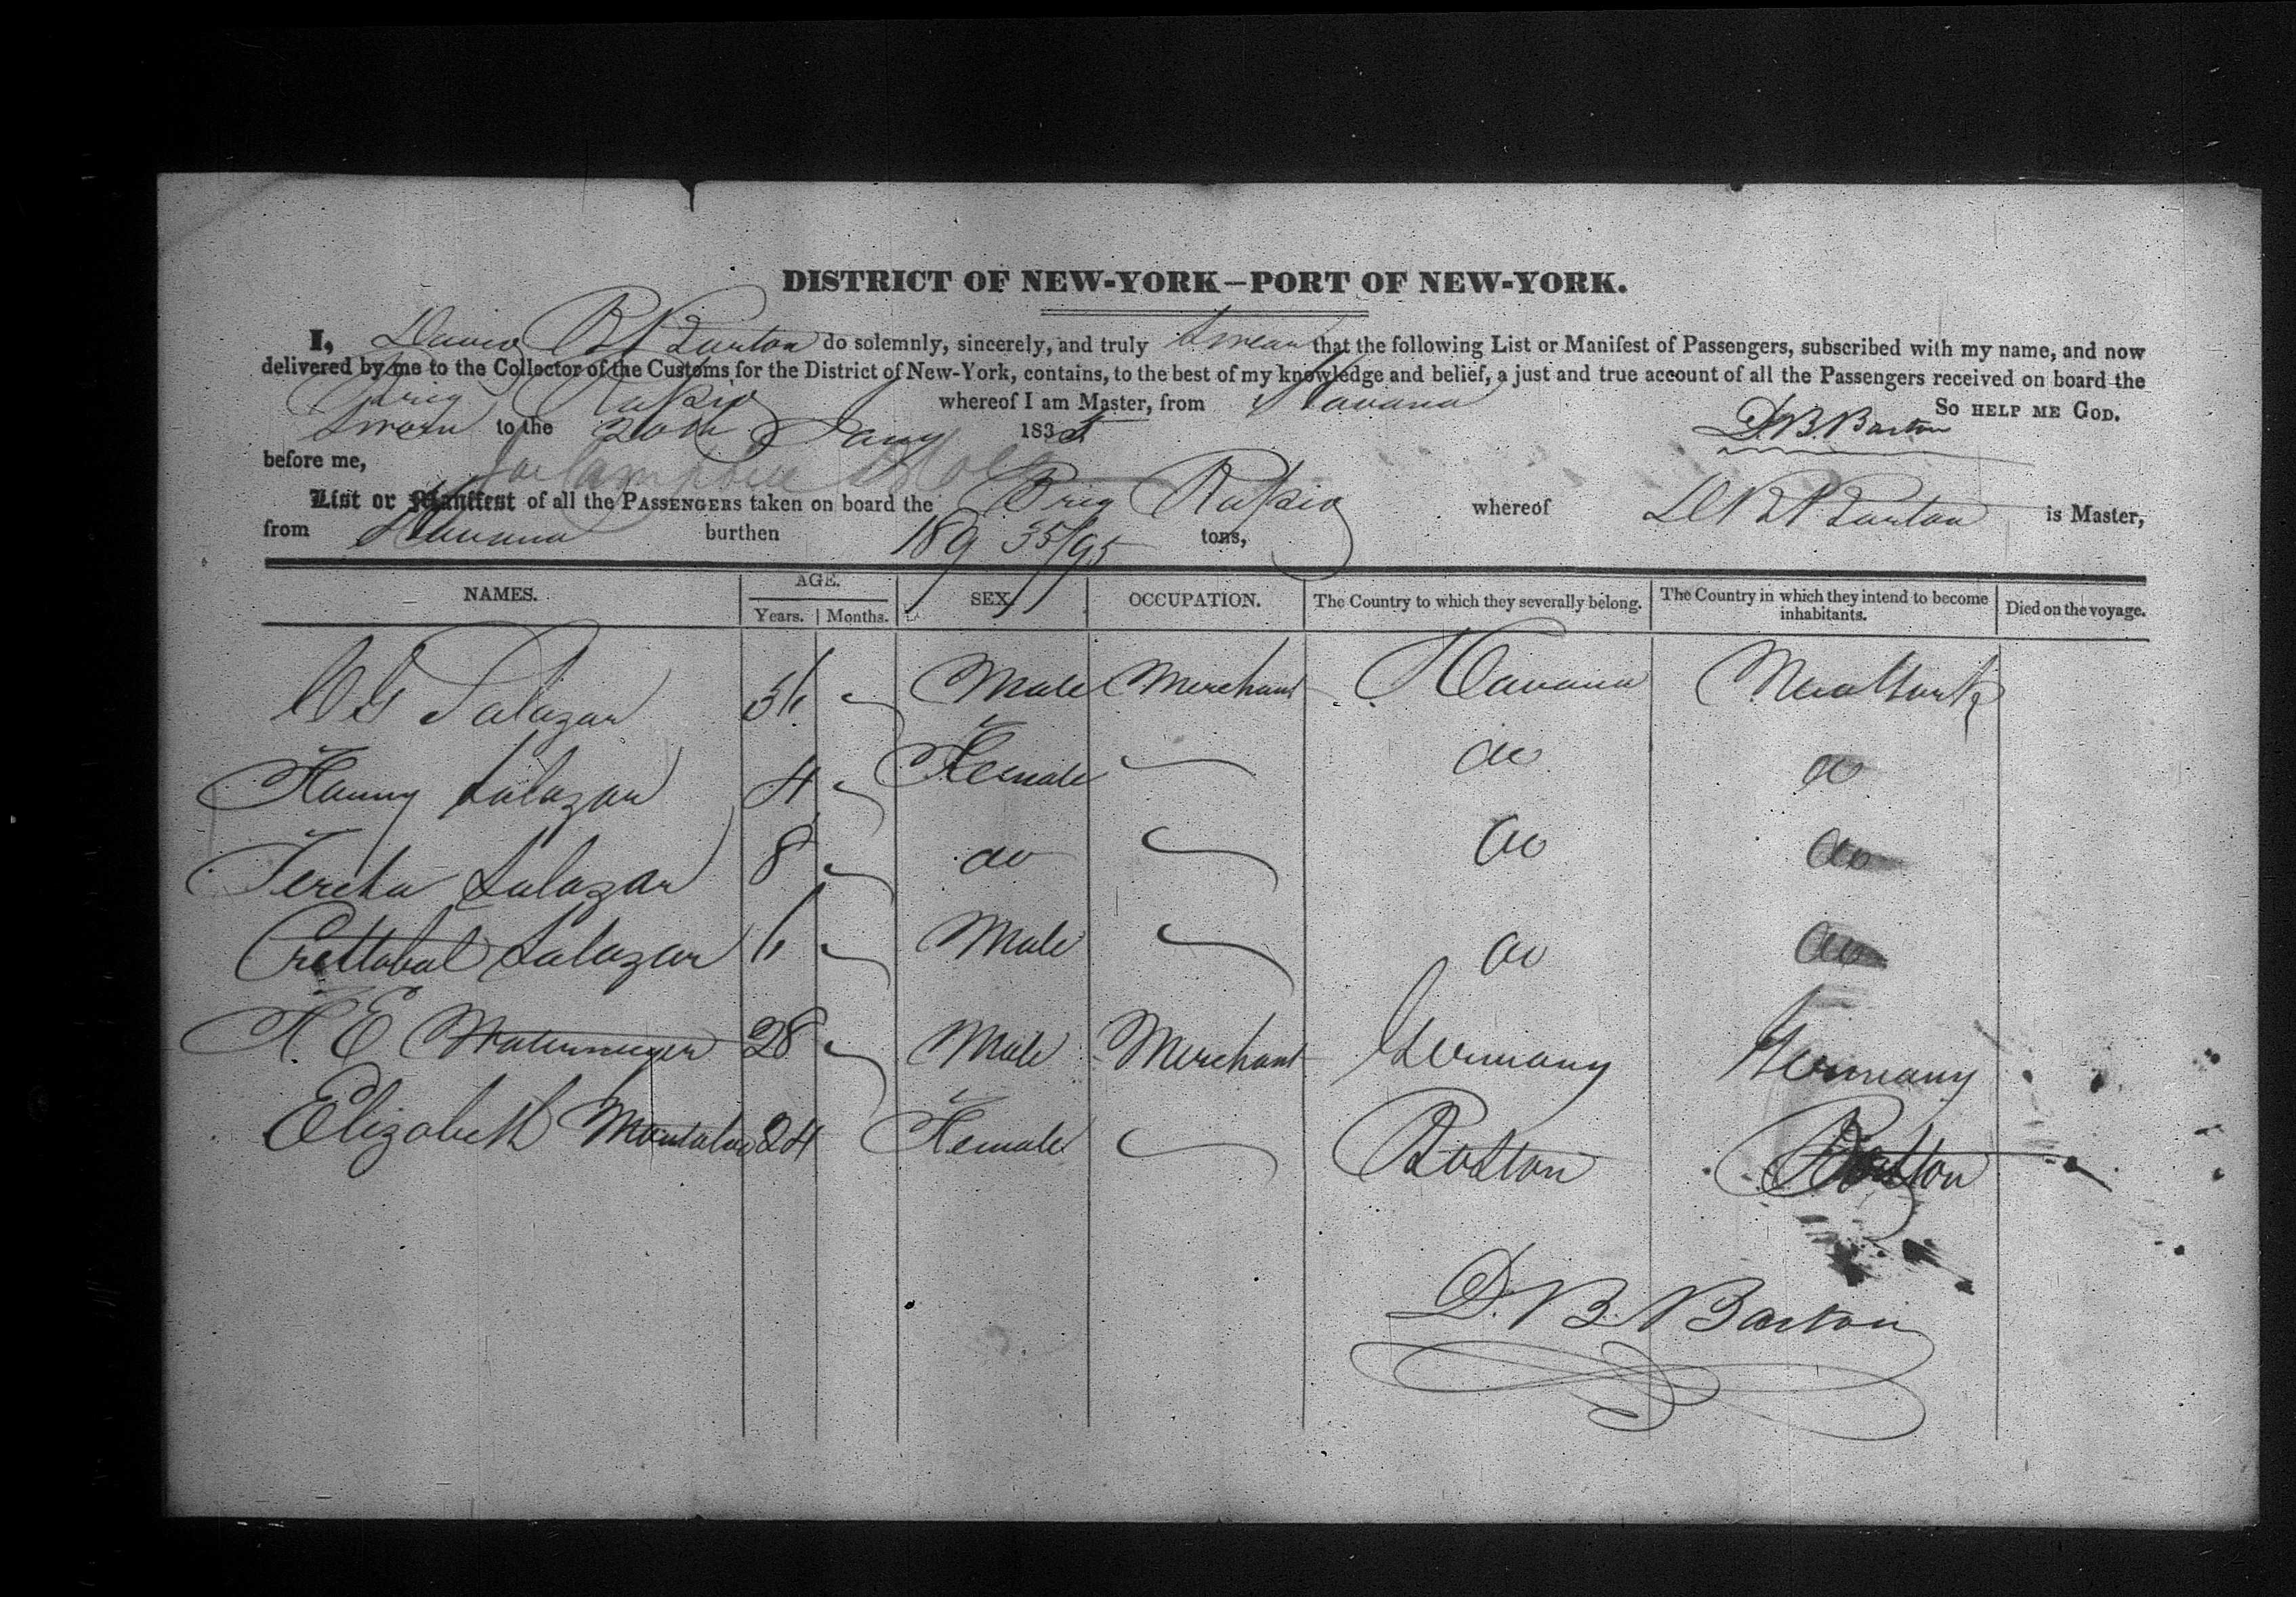 DISTRICT OF NEW-YORK—PORT OF NEW-YORK.
I, David B Barton do solemnly, sincerely, and truly swear that the following List or Manifest of Passengers, subscribed with my name, and now
delivered by me to the Collector of the Customs for the District of New-York, contains, to the best of my knowledge and belief, a just and true account of all the Passengers received on board the
Brig whereof I am Master, from Havana So HELP ME GOD.
Sworn to the 20th Jany 1835 D.B. Barton
before me,
List or Manifest of all the PASSENGERS taken on board the Brig whereof D B Barton is Master,
from Havana burthen 189 35/95 tons,
NAMES. AGE. Years. Months. SEX. OCCUPATION. The Country to which they severally belong. The Country in which they intend to become inhabitants. Died on the voyage.
Salazar 36 Male Merchant Havana New York
Fanny Salazar 4 Female do do
Salazar 8 do do do
Salazar 6 Male do do
F E 28 Male Merchant Germany Germany
Elizabeth 24 Female Boston Boston
D. B. Barton